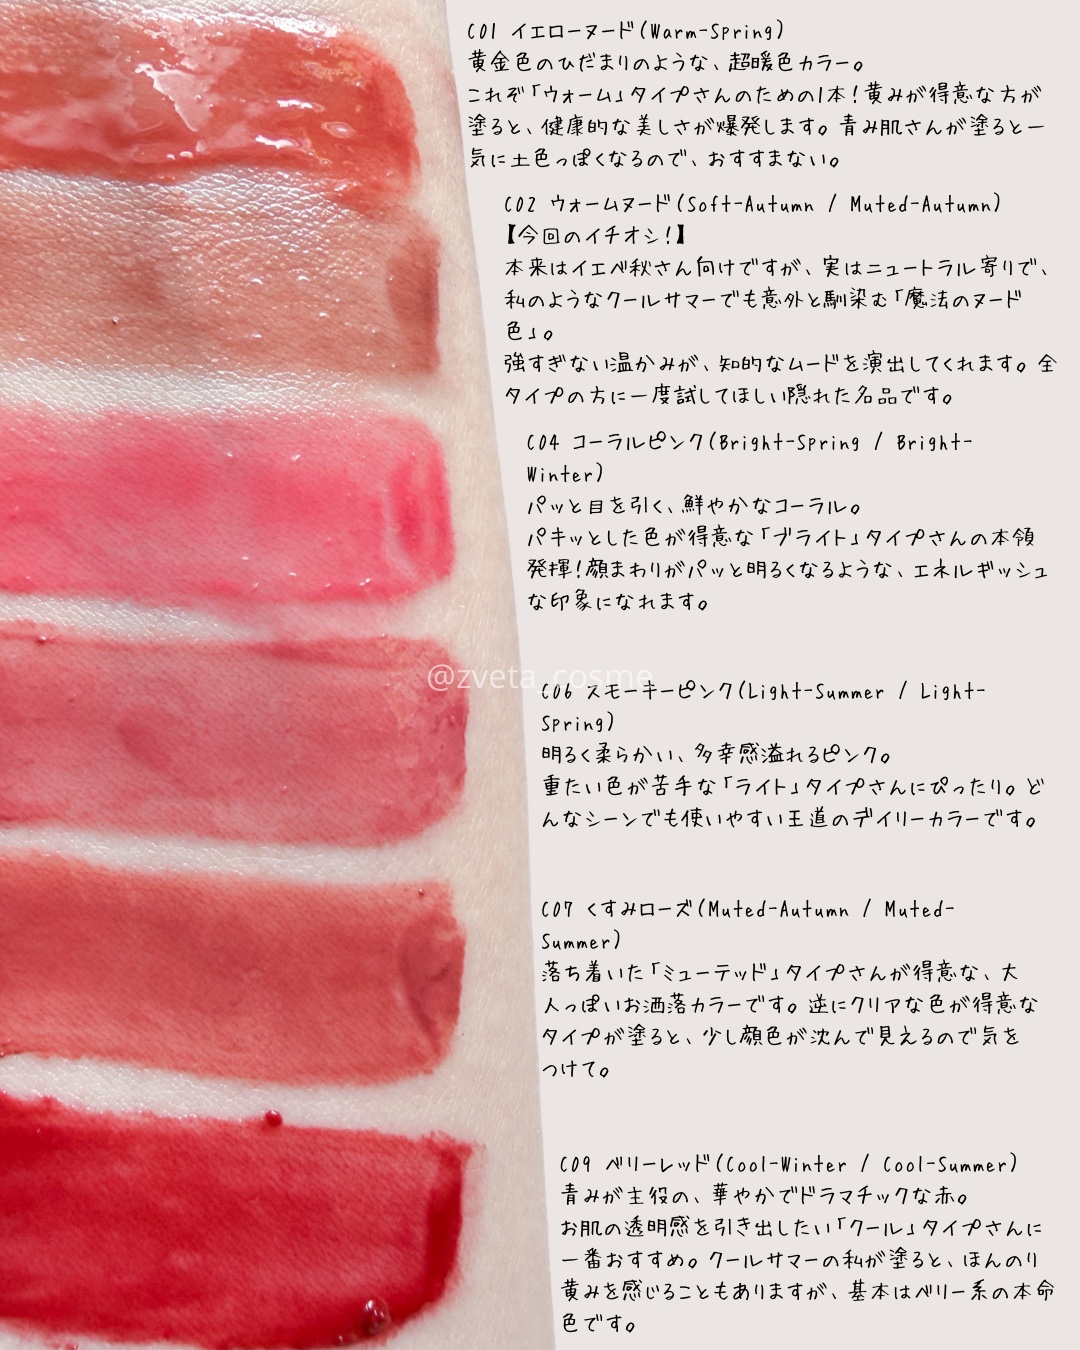 C01 イエローヌード(Warm-Spring)
黄金色のひだまりのような、超暖色カラー。
これぞ「ウォーム」タイプさんのための1本!黄みが得意な方が
塗ると、健康的な美しさが爆発します。青み肌さんが塗ると一
気に土色っぽくなるので、おすすまない。
C02 ウォームヌード(Soft-Autumn / Muted-Autumn)
【今回のイチオシ!】
本来はイエベ秋さん向けですが、実はニュートラル寄りで、
私のようなクールサマーでも意外と馴染む「魔法のヌード
色」。
強すぎない温かみが、知的なムードを演出してくれます。全
タイプの方に一度試してほしい隠れた名品です。
C04 コーラルピンク(Bright-Spring / Bright-
Winter)
パッと目を引く、鮮やかなコーラル。
パキッとした色が得意な「ブライト」タイプさんの本領
発揮!顔まわりがパッと明るくなるような、エネルギッシュ
な印象になれます。
@zveta_cosme
C06 スモーキーピンク(Light-Summer / Light-
Spring)
明るく柔らかい、多幸感溢れるピンク。
重たい色が苦手な「ライト」タイプさんにぴったり。ど
んなシーンでも使いやすい王道のデイリーカラーです。
C07 くすみローズ(Muted-Autumn / Muted-
Summer)
落ち着いた「ミューテッド」タイプさんが得意な、大
人っぽいお洒落カラーです。逆にクリアな色が得意な
タイプが塗ると、少し顔色が沈んで見えるので気を
つけて。
C09 ベリーレッド(Cool-Winter / Cool-Summer)
青みが主役の、華やかでドラマチックな赤。
お肌の透明感を引き出したい「クール」タイプさんに
一番おすすめ。クールサマーの私が塗ると、ほんのり
黄みを感じることもありますが、基本はベリー系の本命
色です。